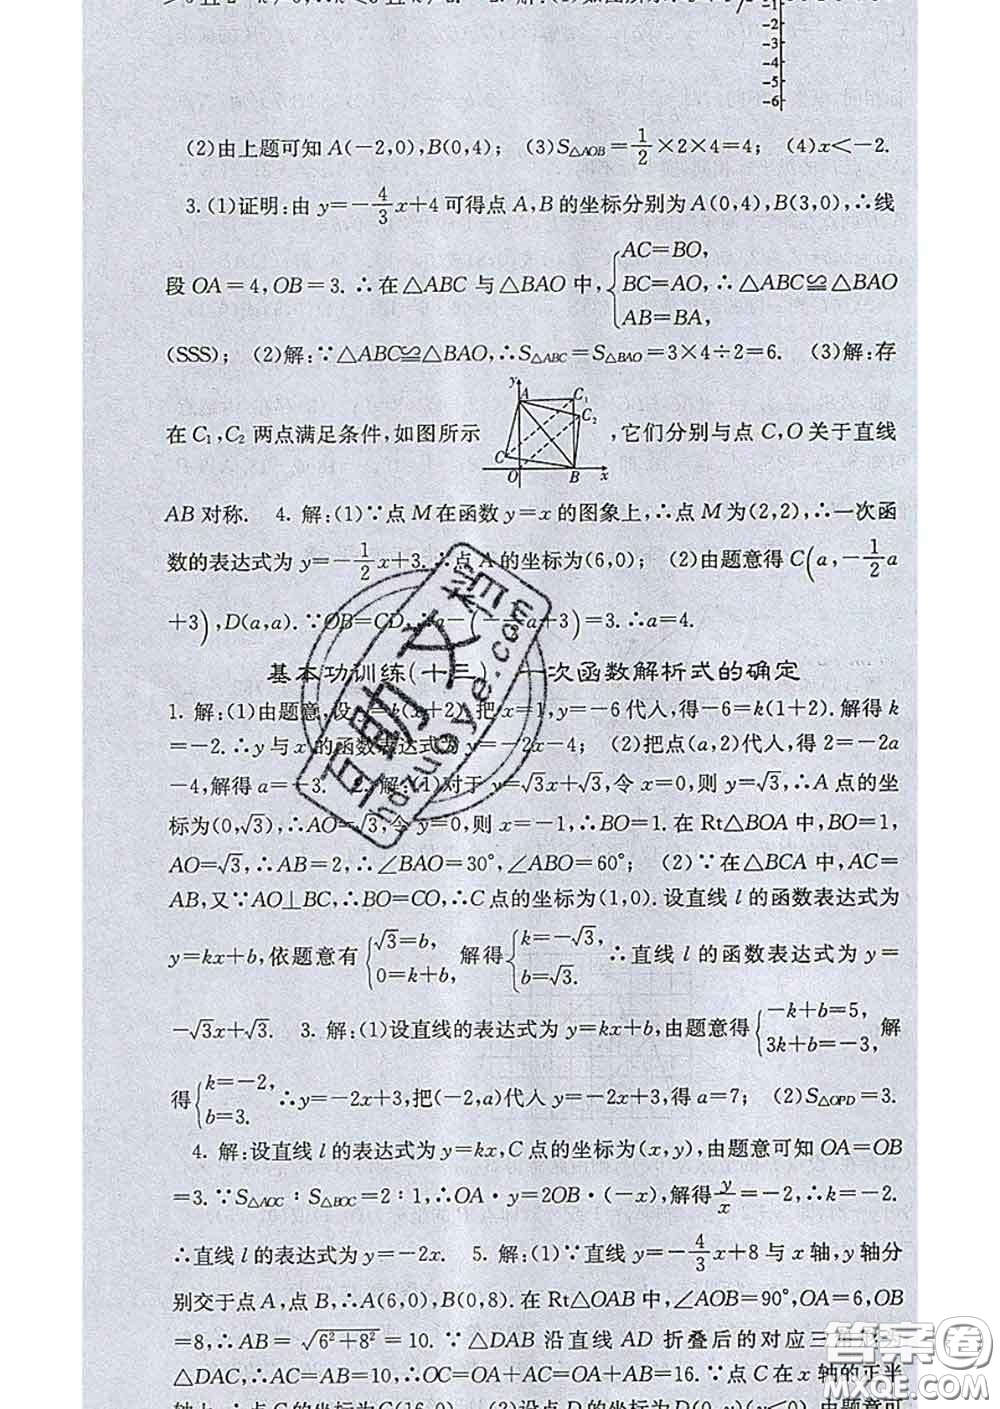 -1
-2
-3
-4
-5
-6
(2)由上题可知 A(-2,0),B(0,4); (3)S△AOB=1/2×2×4=4; (4)x<-2.
3.(1)证明:由 y=-4/3x+4 可得点 A,B 的坐标分别为 A(0,4),B(3,0),∴线
段 OA=4,OB=3. ∴在△ABC 与△BAO 中,{AC=BO, BC=AO, AB=BA, ∴△ABC≌△BAO
(SSS); (2)解:∵△ABC≌△BAO,∴S△ABC=S△BAO=3×4÷2=6. (3)解:存
在 C₁,C₂ 两点满足条件,如图所示 y A C₁ C₂ C O B x ,它们分别与点 C,O 关于直线
AB 对称. 4. 解:(1)∵点 M 在函数 y=x 的图象上,∴点 M 为(2,2),∴一次函
数的表达式为 y=-1/2x+3.∴点 A 的坐标为(6,0); (2)由题意得 C(a,-1/2a
+3),D(a,a).∵OB=CD,∴a-(-1/2a+3)=3.∴a=4.
基本功训练(十三) 一次函数解析式的确定
1. 解:(1)由题意,设 y=k(x+2),把 x=1,y=-6代人,得-6=k(1+2).解得 k
=-2.∴y 与 x 的函数表达式为 y=-2x-4; (2)把点(a,2)代人,得 2=-2a
-4,解得 a=-3. 2. 解:(1)对于 y=√3x+√3,令 x=0,则 y=√3,∴A 点的坐
标为(0,√3),∴AO=√3,令 y=0,则 x=-1,∴BO=1. 在 Rt△BOA 中,BO=1,
AO=√3,∴AB=2,∴∠BAO=30°,∠ABO=60°; (2)∵在△BCA 中,AC=
AB,又∵AO⊥BC,∴BO=CO,∴C 点的坐标为(1,0). 设直线 l 的函数表达式为
y=kx+b,依题意有{√3=b, 0=k+b, 解得{k=-√3, b=√3. ∴直线 l 的函数表达式为 y=
-√3x+√3. 3. 解:(1)设直线的表达式为 y=kx+b,由题意得{-k+b=5, 3k+b=-3, 解
得{k=-2, b=3. ∴y=-2x+3,把(-2,a)代人 y=-2x+3,得 a=7; (2)S△OPD=3.
4. 解:设直线 l 的表达式为 y=kx,C 点的坐标为(x,y),由题意可知 OA=OB
=3.∵S△AOC∶S△BOC=2∶1,∴OA·y=2OB·(-x),解得y/x=-2,∴k=-2.
∴直线 l 的表达式为 y=-2x. 5. 解:(1)∵直线 y=-4/3x+8 与 x 轴,y 轴分
别交于点 A,点 B,∴A(6,0),B(0,8). 在 Rt△OAB 中,∠AOB=90°,OA=6,OB
=8,∴AB=√6²+8²=10. ∵△DAB 沿直线 AD 折叠后的对应三角形为
△DAC,∴AC=AB=10,∴OC=OA+AC=OA+AB=16.∵点 C 在 x 轴的正半
轴上,∴点 C 的坐标为 C(16,0). (2)设点 D 的坐标为 D(0,y)(y<0),由题意可
互助文档
hdzuoye.com
答案圈
MXQE.COM